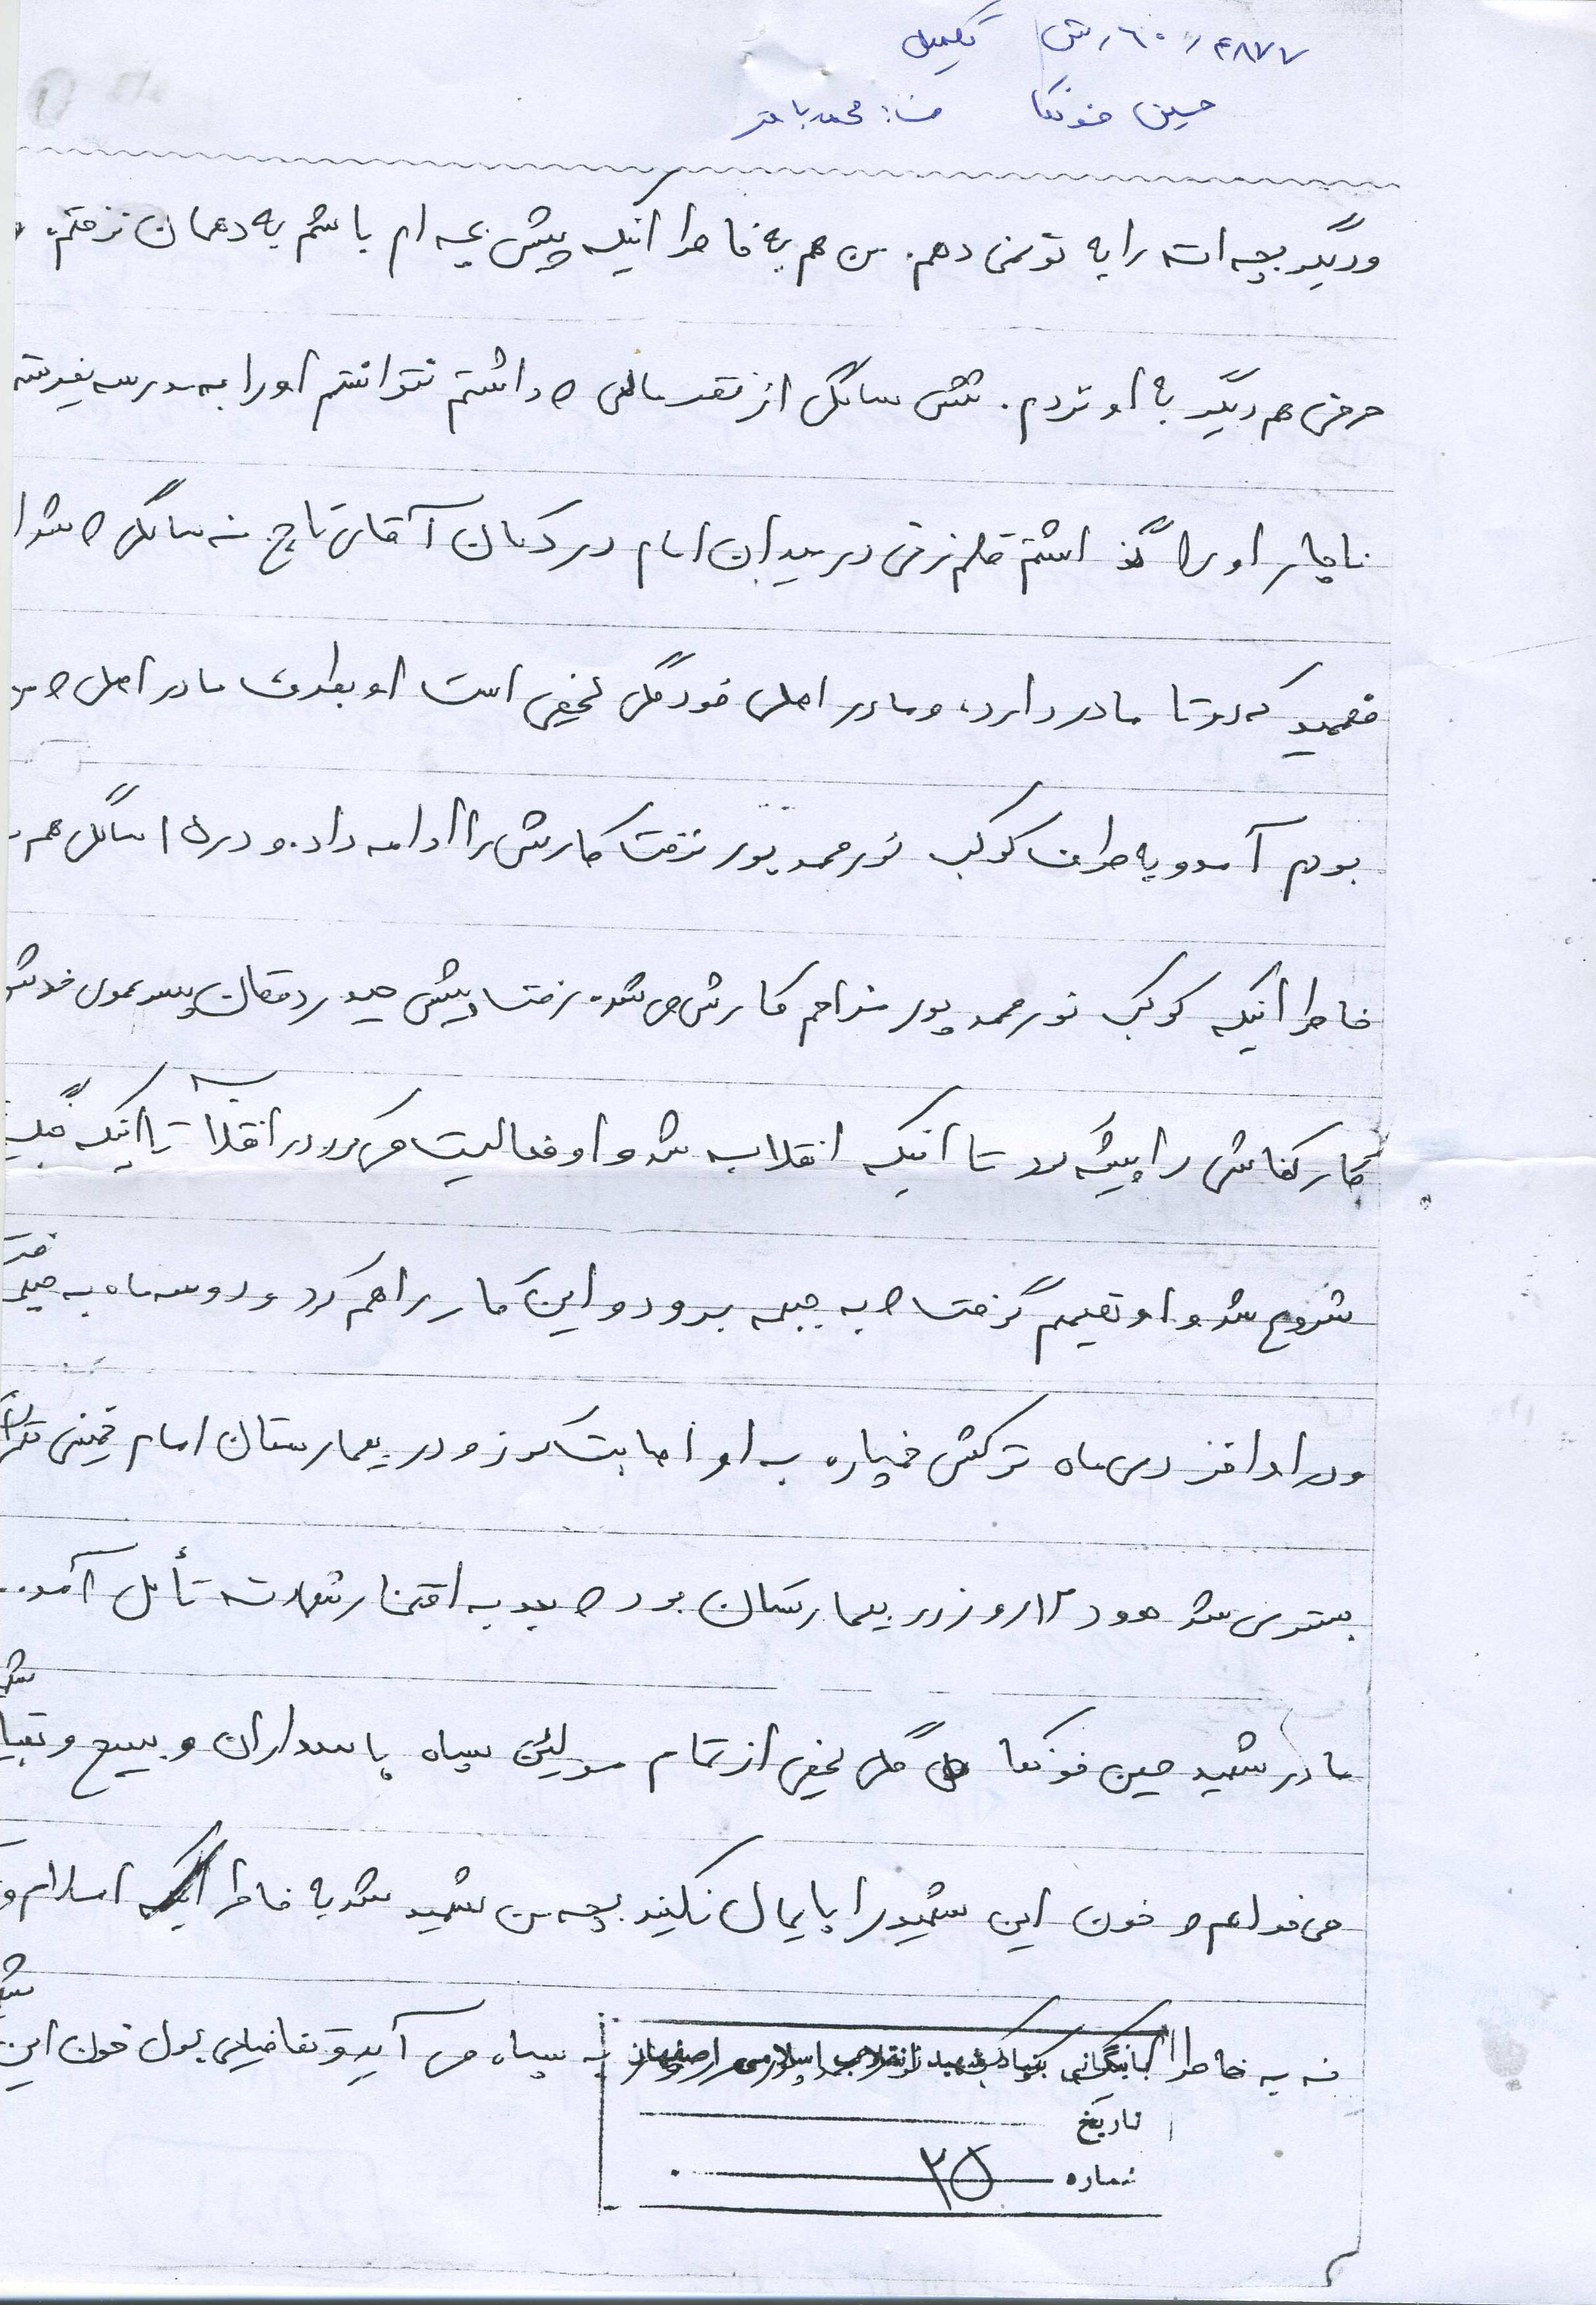 ۴۸۷۷ / ۶۰ / ش تکمیل
حسین خونکا ف: محمدباقر
و دیگر بچه ات را به تو نمی دهم. من هم به خاطر اینکه پیش بچه ام باشم به دهمان نرفتم.
حرفی هم دیگر با او نزدم. شش سالگی از فقر مالی که داشتم نتوانستم او را به مدرسه بفرستم
ناچار او را گذاشتم قلم زنی در میدان امام در دکان آقای تاج. نه سالگی که شد
فهمید که دو تا مادر دارد، و مادر اصلی خود گلی نجفی است او بطرف مادر اصلی که من
بودم آمد و به طرف کوکب نورمحمدپور نرفت کارش را ادامه داد. و در ۱۵ سالگی هم
خاطر اینکه کوکب نورمحمدپور مزاحم کارش می شد. رفت پیش حیدر دهقان پسر عموی خودش
کار کفاشی را پیشه کرد تا اینکه انقلاب شد و او فعالیت می کرد در انقلاب تا اینکه جنگ
شروع شد و او تصمیم گرفت که به جبهه برود و این کار را هم کرد و دو سه ماه به جبهه رفت
و در اواخر دی ماه ترکش خمپاره به او اصابت کرد و در بیمارستان امام خمینی تهران
بستری شد حدود ۱۲ روز در بیمارستان بود که بعد به افتخار شهادت نائل آمد..
مادر شهید حسین خونکا گلی نجفی از تمام مسولین سپاه پاسداران و بسیج و بنیاد شهید
می خواهم که خون این شهید را پایمال نکنید بچه من شهید شد به خاطر اینکه اسلام و
نه به خاطر به سپاه می آید و تقاضای پول خون این شهید
بایگانی بنیاد شهید انقلاب اسلامی اصفهان
تاریخ
شماره ۲۵